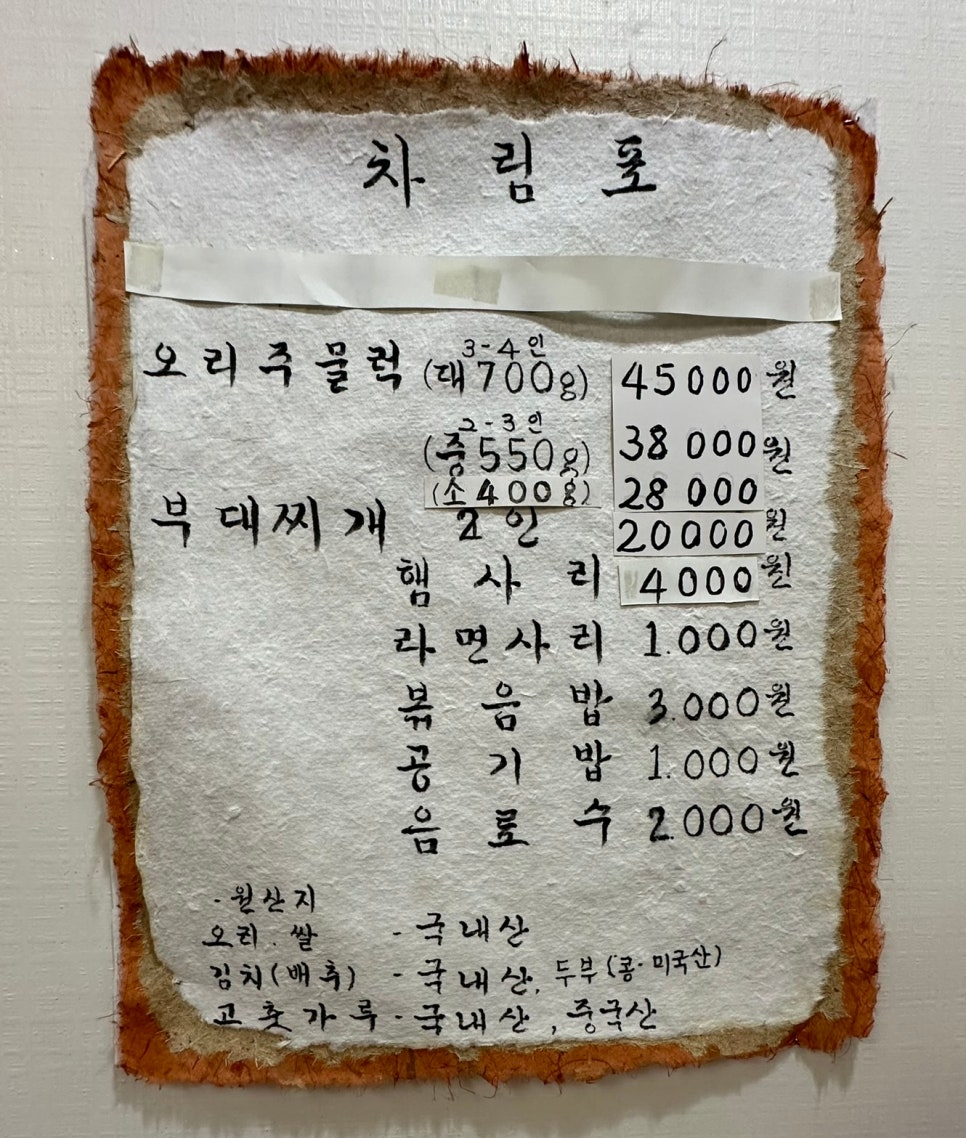 차림표
오리주물럭 3-4인 (대700g) 45000원
2-3인 (중550g) 38000원
(소400g) 28000
부대찌개 2인 20000원
햄사리 4000원
라면사리 1.000원
볶음밥 3.000원
공기밥 1.000원
음료수 2.000원
·원산지
오리.쌀 - 국내산
김치(배추) - 국내산, 두부(콩·미국산)
고춧가루 - 국내산, 중국산